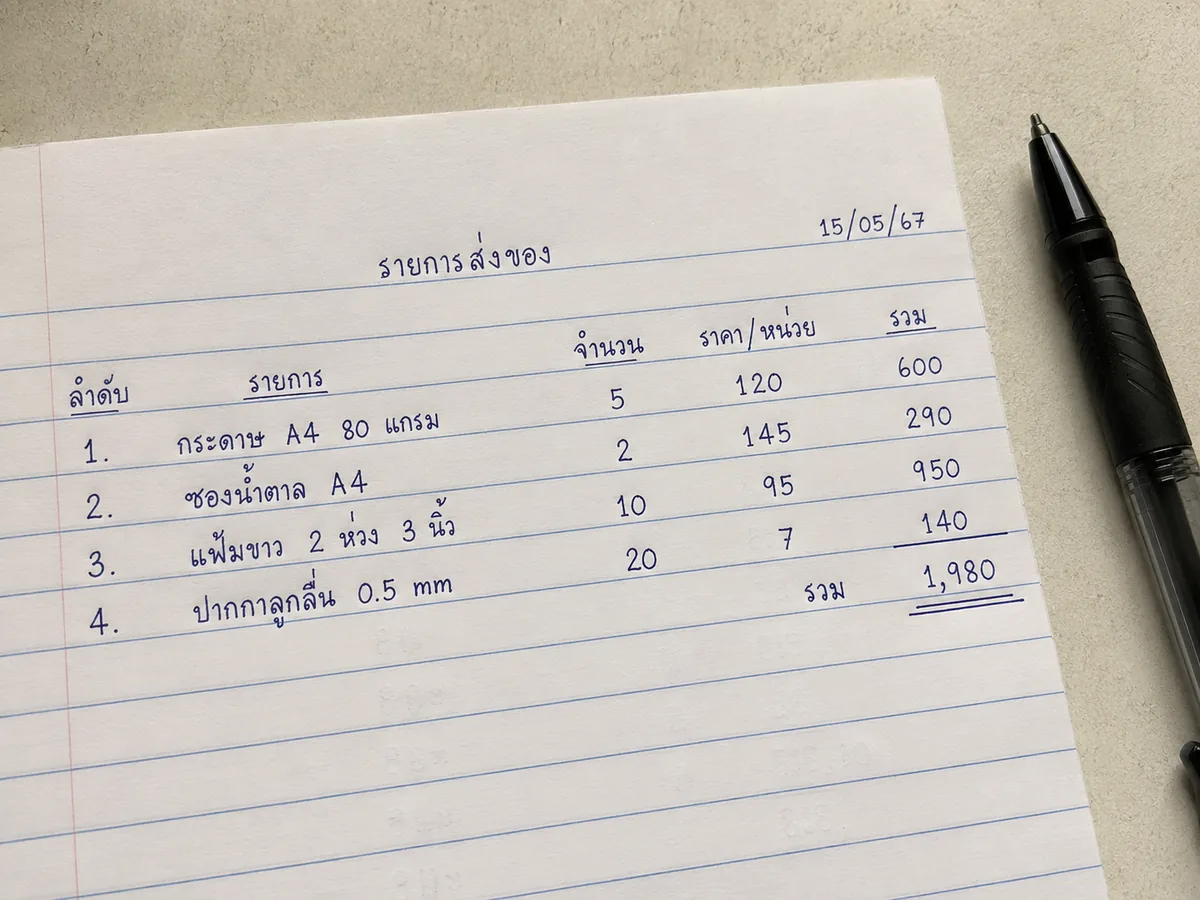 15/05/67
รายการส่งของ
ลำดับ รายการ จำนวน ราคา/หน่วย รวม
1. กระดาษ A4 80 แกรม 5 120 600
2. ซองน้ำตาล A4 2 145 290
3. แฟ้มขาว 2 ห่วง 3 นิ้ว 10 95 950
4. ปากกาลูกลื่น 0.5 mm 20 7 140
รวม 1,980